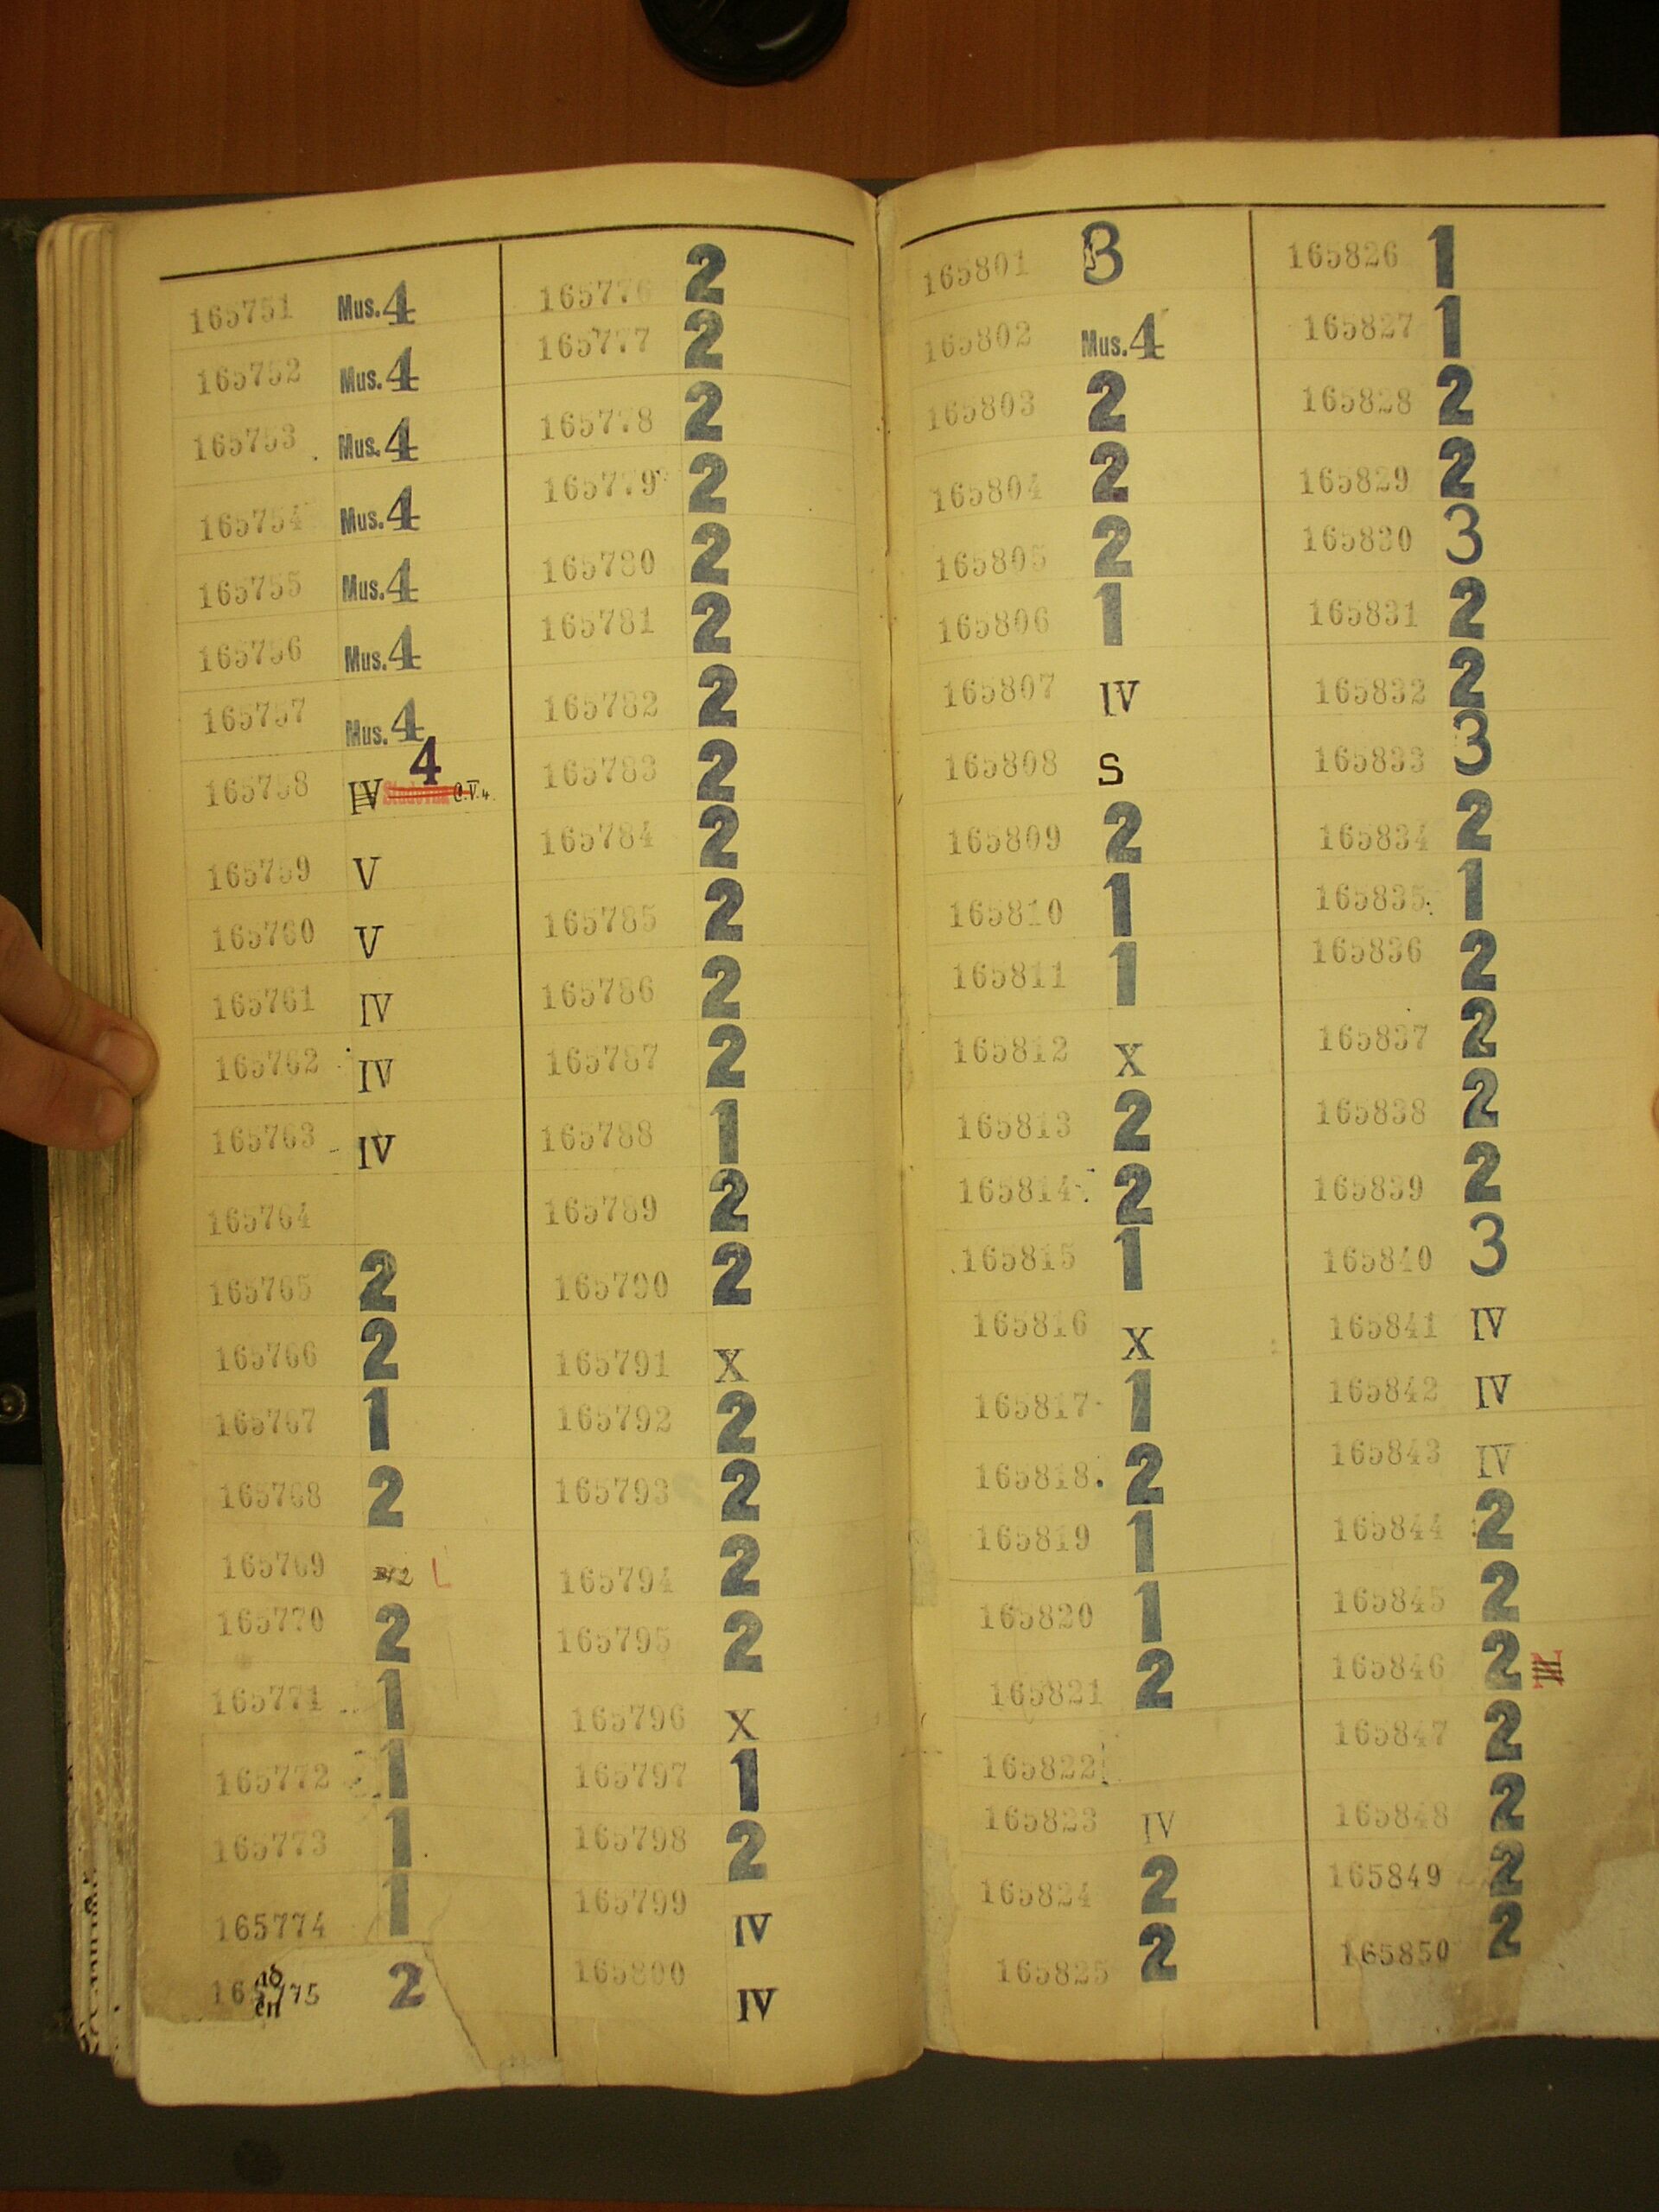 165751 Mus. 4
165752 Mus. 4
165753 Mus. 4
165754 Mus. 4
165755 Mus. 4
165756 Mus. 4
165757 Mus. 4
165758 IV 4 C.V.4.
165759 V
165760 V
165761 IV
165762 IV
165763 IV
165764
165765 2
165766 2
165767 1
165768 2
165769
165770 2
165771 1
165772 1
165773 1
165774 1
165775 2
165776 2
165777 2
165778 2
165779 2
165780 2
165781 2
165782 2
165783 2
165784 2
165785 2
165786 2
165787 2
165788 1
165789 2
165790 2
165791 X
165792 2
165793 2
165794 2
165795 2
165796 X
165797 1
165798 2
165799 IV
165800 IV
165801 3
165802 Mus. 4
165803 2
165804 2
165805 2
165806 1
165807 IV
165808 S
165809 2
165810 1
165811 1
165812 X
165813 2
165814 2
165815 1
165816 X
165817 1
165818 2
165819 1
165820 1
165821 2
165822
165823 IV
165824 2
165825 2
165826 1
165827 1
165828 2
165829 2
165830 3
165831 2
165832 2
165833 3
165834 2
165835 1
165836 2
165837 2
165838 2
165839 2
165840 3
165841 IV
165842 IV
165843 IV
165844 2
165845 2
165846 2 N
165847 2
165848 2
165849 2
165850 2